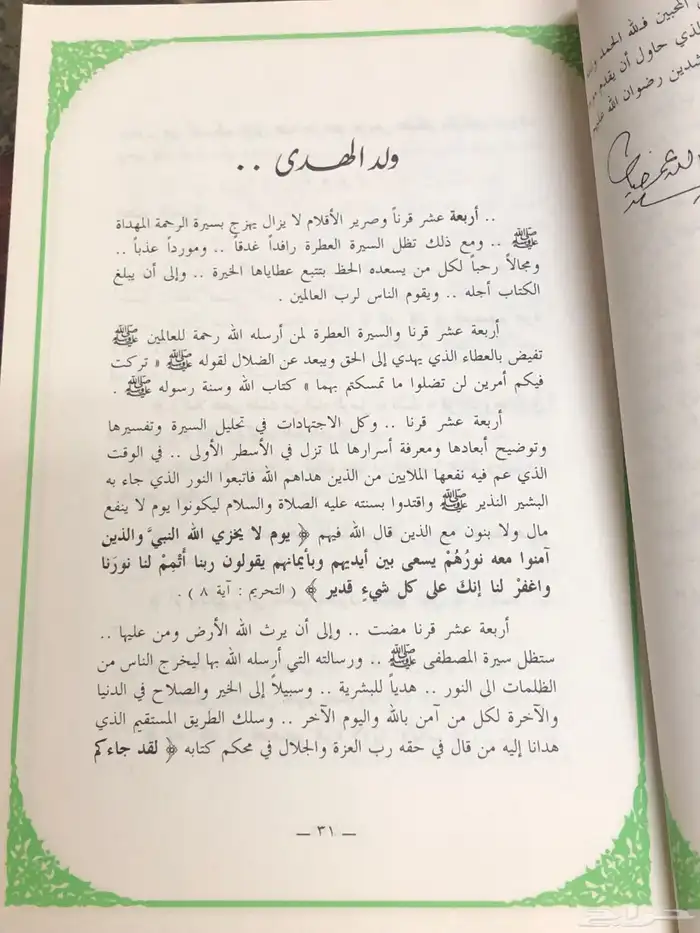 ولد الهدى ..
.. أربعة عشر قرناً وصرير الأقلام لا يزال يهزج بسيرة الرحمة المهداة
ﷺ .. ومع ذلك تظل السيرة العطرة رافداً غدقاً .. ومورداً عذباً ..
ومجالاً رحباً لكل من يسعده الحظ بتتبع عطاياها الخيرة .. وإلى أن يبلغ
الكتاب أجله .. ويقوم الناس لرب العالمين .
أربعة عشر قرنا والسيرة العطرة لمن أرسله الله رحمة للعالمين ﷺ
تفيض بالعطاء الذي يهدي إلى الحق ويبعد عن الضلال لقوله ﷺ « تركت
فيكم أمرين لن تضلوا ما تمسكتم بهما » كتاب الله وسنة رسوله ﷺ .
أربعة عشر قرنا .. وكل الاجتهادات في تحليل السيرة وتفسيرها
وتوضيح أبعادها ومعرفة أسرارها لما تزل في الأسطر الأولى .. في الوقت
الذي عم فيه نفعها الملايين من الذين هداهم الله فاتبعوا النور الذي جاء به
البشير النذير ﷺ واقتدوا بسنته عليه الصلاة والسلام ليكونوا يوم لا ينفع
مال ولا بنون مع الذين قال الله فيهم ﴿ يوم لا يخزي الله النبيَّ والذين
آمنوا معه نورُهُمْ يسعى بين أيديهم وبأيمانهم يقولون ربنا أَتْمِمْ لنا نورَنا
واغفرْ لنا إنكَ على كل شيءٍ قدير ﴾ ( التحريم : آية ٨ ) .
أربعة عشر قرنا مضت .. وإلى أن يرث الله الأرض ومن عليها ..
ستظل سيرة المصطفى ﷺ .. ورسالته التي أرسله الله بها ليخرج الناس من
الظلمات الى النور .. هدياً للبشرية .. وسبيلاً إلى الخير والصلاح في الدنيا
والآخرة لكل من آمن بالله واليوم الآخر .. وسلك الطريق المستقيم الذي
هدانا إليه من قال في حقه رب العزة والجلال في محكم كتابه ﴿ لقد جاءكم
— ٣١ —
المحبين فلله الحمد
الذي حاول أن يقدم
رضوان الله عليهم
حراج